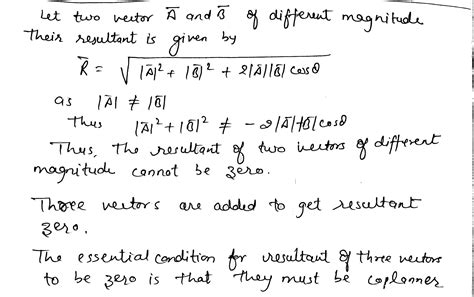 Let two vector A̅ and B̅ of different magnitude
Their resultant is given by
R̅ = √|A̅|² + |B̅|² + 2|A̅||B̅| Cosθ
as |A̅| ≠ |B̅|
Thus |A̅|² + |B̅|² ≠ - 2|A̅||B̅|cosθ
Thus, The resultant of two vectors of different
magnitude cannot be zero.
Three vectors are added to get resultant
zero.
The essential condition for resultant of three vectors
to be zero is that They must be coplanner